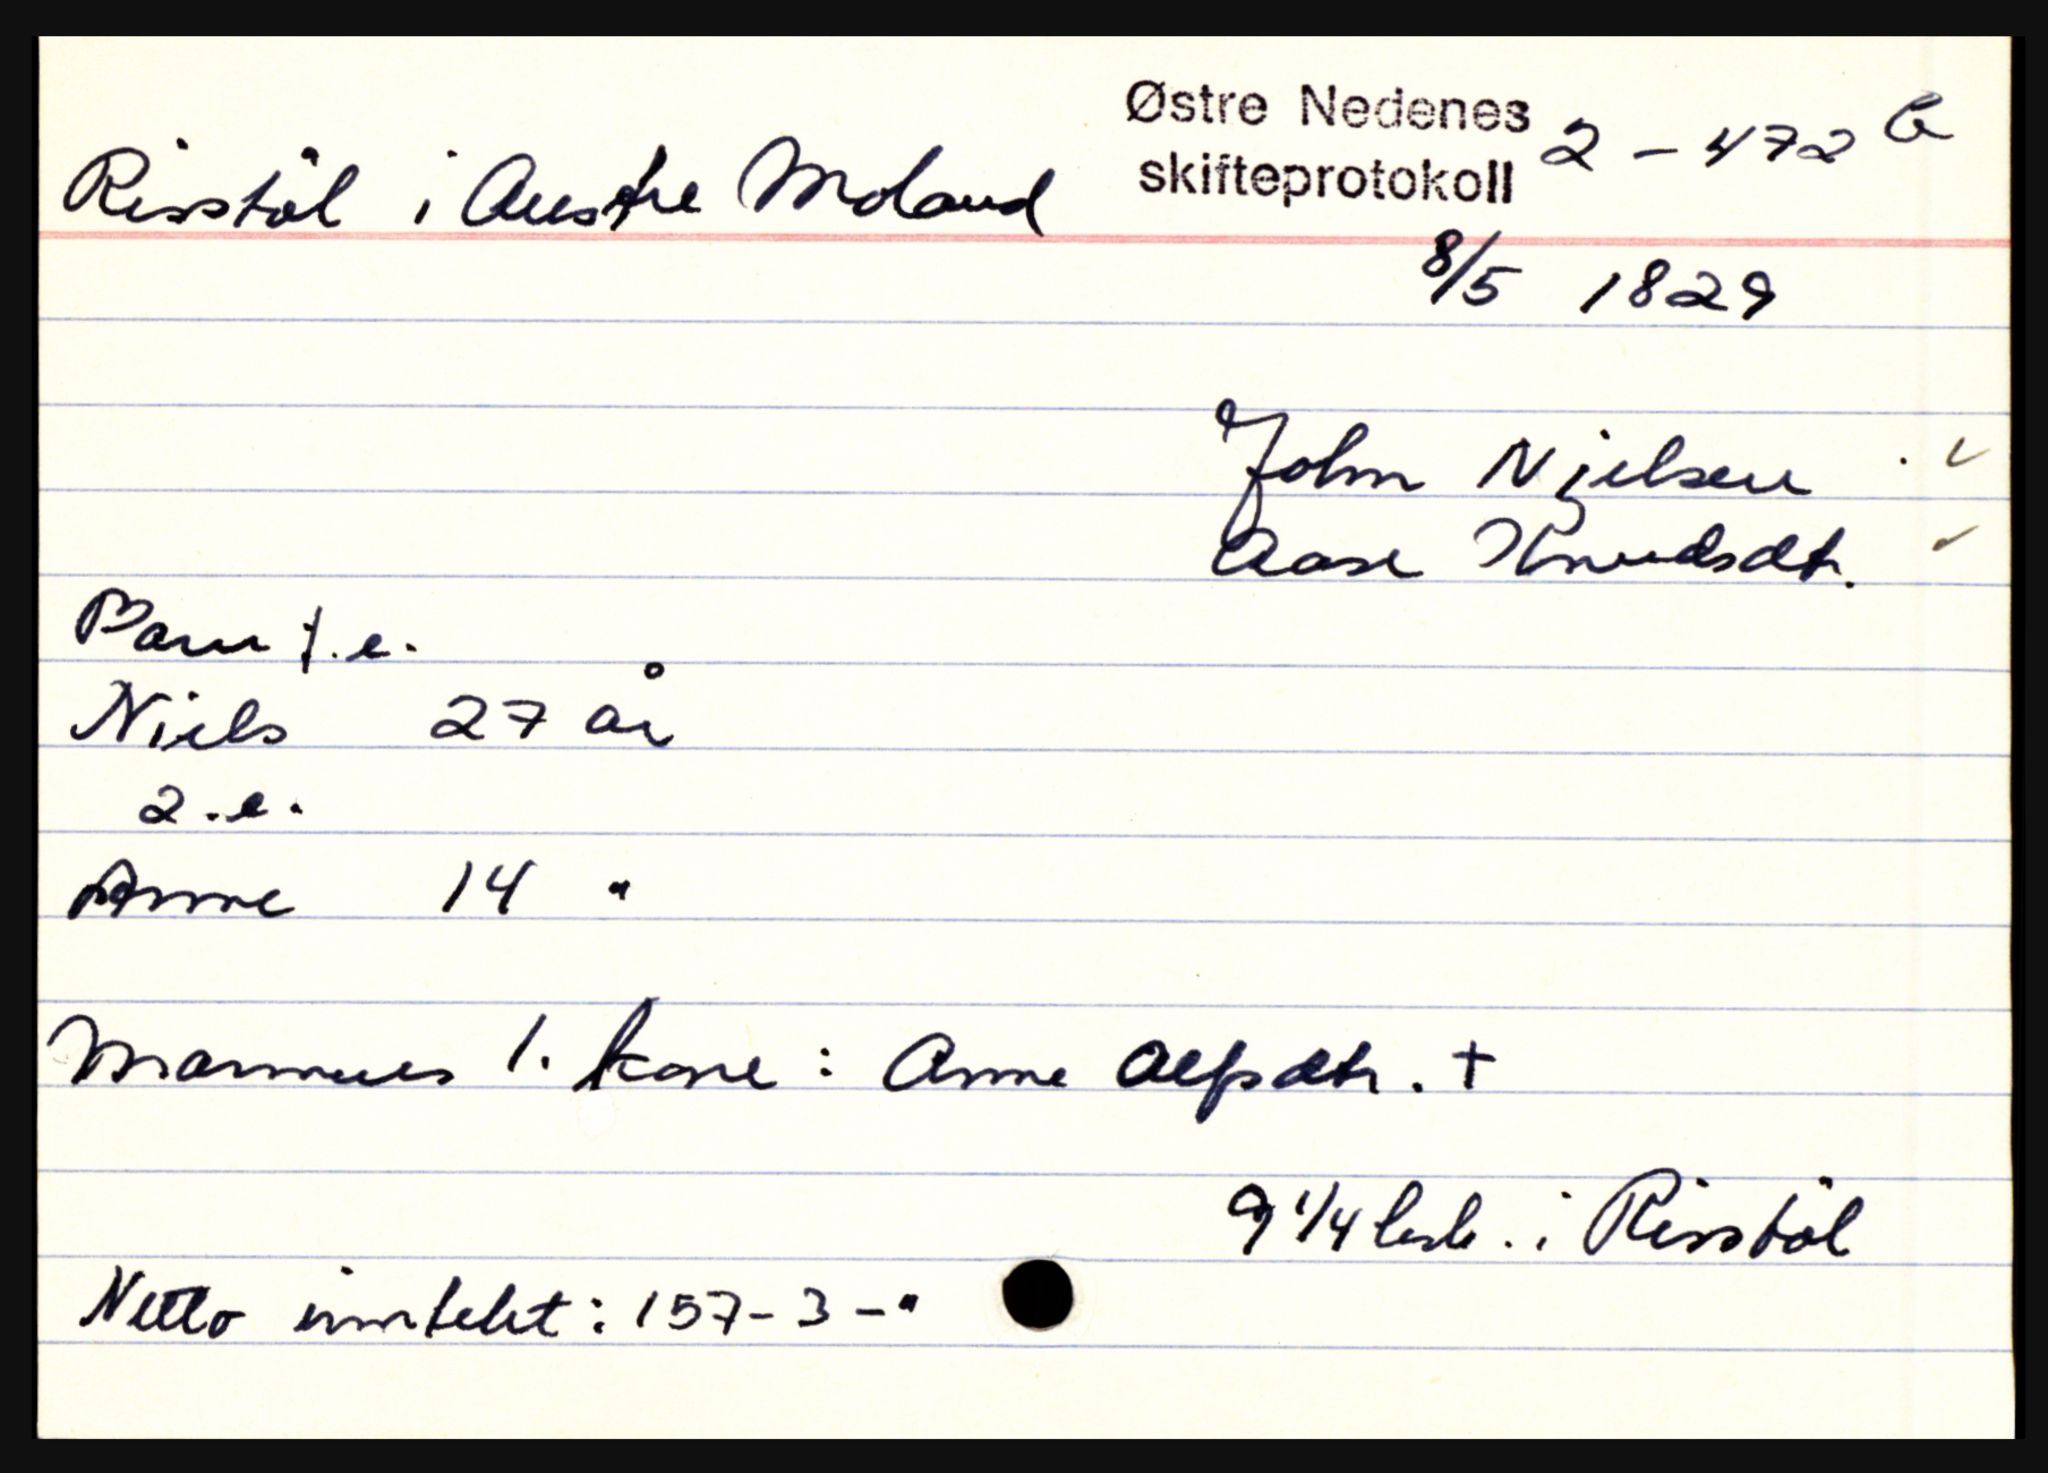 Østre Nedenes
skifteprotokoll 2-472 b
Risstøl i Austre Moland
8/5 1829
John Njelsen
Aase Knudsdtr.
Barn f.e.
Niels 27 år
2.e.
Anne 14 "
Mannens 1. kone: Anne Alfsdtr. +
9 1/4 i Risstøl
Netto inntekt: 157-3-"